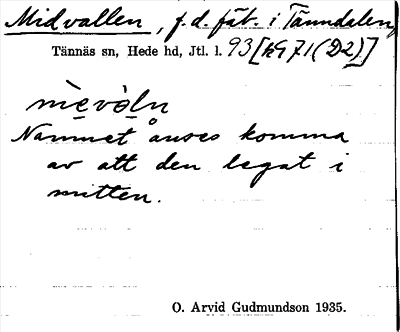 Midvallen, f.d. fäb. i Tänndalen,
Tännäs sn, Hede hd, Jtl. l. 93 [kG 71 (D2)]
mèvòln
Namnet anses komma
av att den legat i
mitten.
O. Arvid Gudmundson 1935.